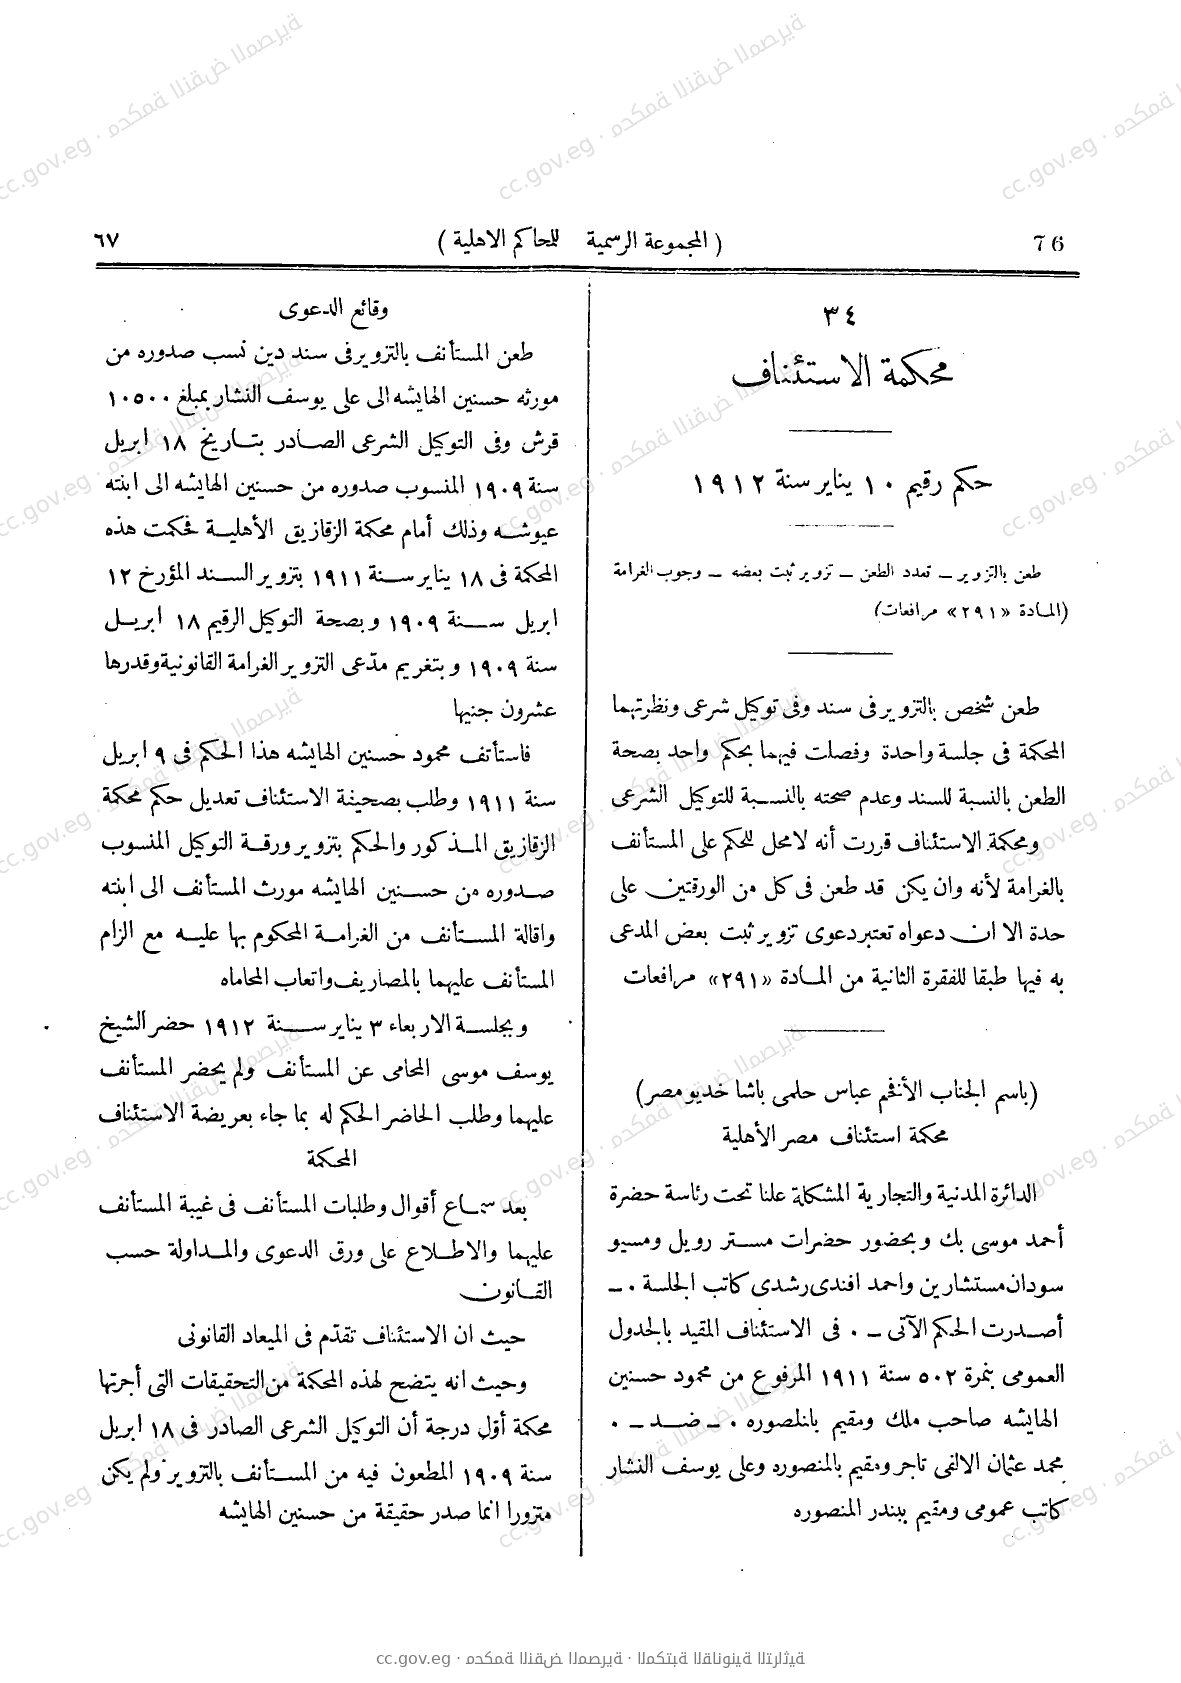 76 ( المجموعة الرسمية للمحاكم الاهلية ) ٦٧
٣٤
محكمة الاستئناف
حكم رقيم ١٠ يناير سنة ١٩١٢
طعن بالتزوير ــ تعدد الطعن ــ تزوير ثبت بعضه ــ وجوب الغرامة
(المادة «٢٩١» مرافعات)
طعن شخص بالتزوير فى سند وفى توكيل شرعى ونظرتهما
المحكمة فى جلسة واحدة وفصلت فيهما بحكم واحد بصحة
الطعن بالنسبة للسند وعدم صحته بالنسبة للتوكيل الشرعى
ومحكمة الاستئناف قررت أنه لامحل للحكم على المستأنف
بالغرامة لأنه وان يكن قد طعن فى كل من الورقتين على
حدة الا ان دعواه تعتبر دعوى تزوير ثبت بعض المدعى
به فيها طبقا للفقرة الثانية من المادة «٢٩١» مرافعات
(باسم الجناب الأفخم عباس حلمى باشا خديو مصر)
محكمة استئناف مصر الأهلية
الدائرة المدنية والتجارية المشكلة علنا تحت رئاسة حضرة
أحمد موسى بك وبحضور حضرات مستر رويل ومسيو
سودان مستشارين واحمد افندى رشدى كاتب الجلسة ٠ ــ
أصدرت الحكم الآتى ــ ٠ فى الاستئناف المقيد بالجدول
العمومى بنمرة ٥٠٢ سنة ١٩١١ المرفوع من محمود حسنين
الهايشه صاحب ملك ومقيم بالمنصوره ٠ ــ ضد ــ ٠
محمد عثمان الالفى تاجر ومقيم بالمنصوره وعلى يوسف النشار
كاتب عمومى ومقيم ببندر المنصوره
وقائع الدعوى
طعن المستأنف بالتزوير فى سند دين نسب صدوره من
مورثه حسنين الهايشه الى على يوسف النشار بمبلغ ١٠٥٠٠
قرش وفى التوكيل الشرعى الصادر بتاريخ ١٨ ابريل
سنة ١٩٠٩ المنسوب صدوره من حسنين الهايشه الى ابنته
عيوشه وذلك أمام محكمة الزقازيق الأهلية فحكمت هذه
المحكمة فى ١٨ يناير سنة ١٩١١ بتزوير السند المؤرخ ١٢
ابريل سنة ١٩٠٩ وبصحة التوكيل الرقيم ١٨ ابريل
سنة ١٩٠٩ وبتغريم مدّعى التزوير الغرامة القانونية وقدرها
عشرون جنيها
فاستأنف محمود حسنين الهايشه هذا الحكم فى ٩ ابريل
سنة ١٩١١ وطلب بصحيفة الاستئناف تعديل حكم محكمة
الزقازيق المذكور والحكم بتزوير ورقة التوكيل المنسوب
صدوره من حسنين الهايشه مورث المستأنف الى ابنته
واقالة المستأنف من الغرامة المحكوم بها عليه مع الزام
المستأنف عليهما بالمصاريف واتعاب المحاماه
وبجلسة الاربعاء ٣ يناير سنة ١٩١٢ حضر الشيخ
يوسف موسى المحامى عن المستأنف ولم يحضر المستأنف
عليهما وطلب الحاضر الحكم له بما جاء بعريضة الاستئناف
المحكمة
بعد سماع أقوال وطلبات المستأنف فى غيبة المستأنف
عليهما والاطلاع على ورق الدعوى والمداولة حسب
القانون
حيث ان الاستئناف تقدّم فى الميعاد القانونى
وحيث انه يتضح لهذه المحكمة من التحقيقات التى أجرتها
محكمة أوّل درجة أن التوكيل الشرعى الصادر فى ١٨ ابريل
سنة ١٩٠٩ المطعون فيه من المستأنف بالتزوير ولم يكن
متزورا انما صدر حقيقة من حسنين الهايشه
cc.gov.eg · محكمة النقض المصرية · المكتبة القانونية التراثية